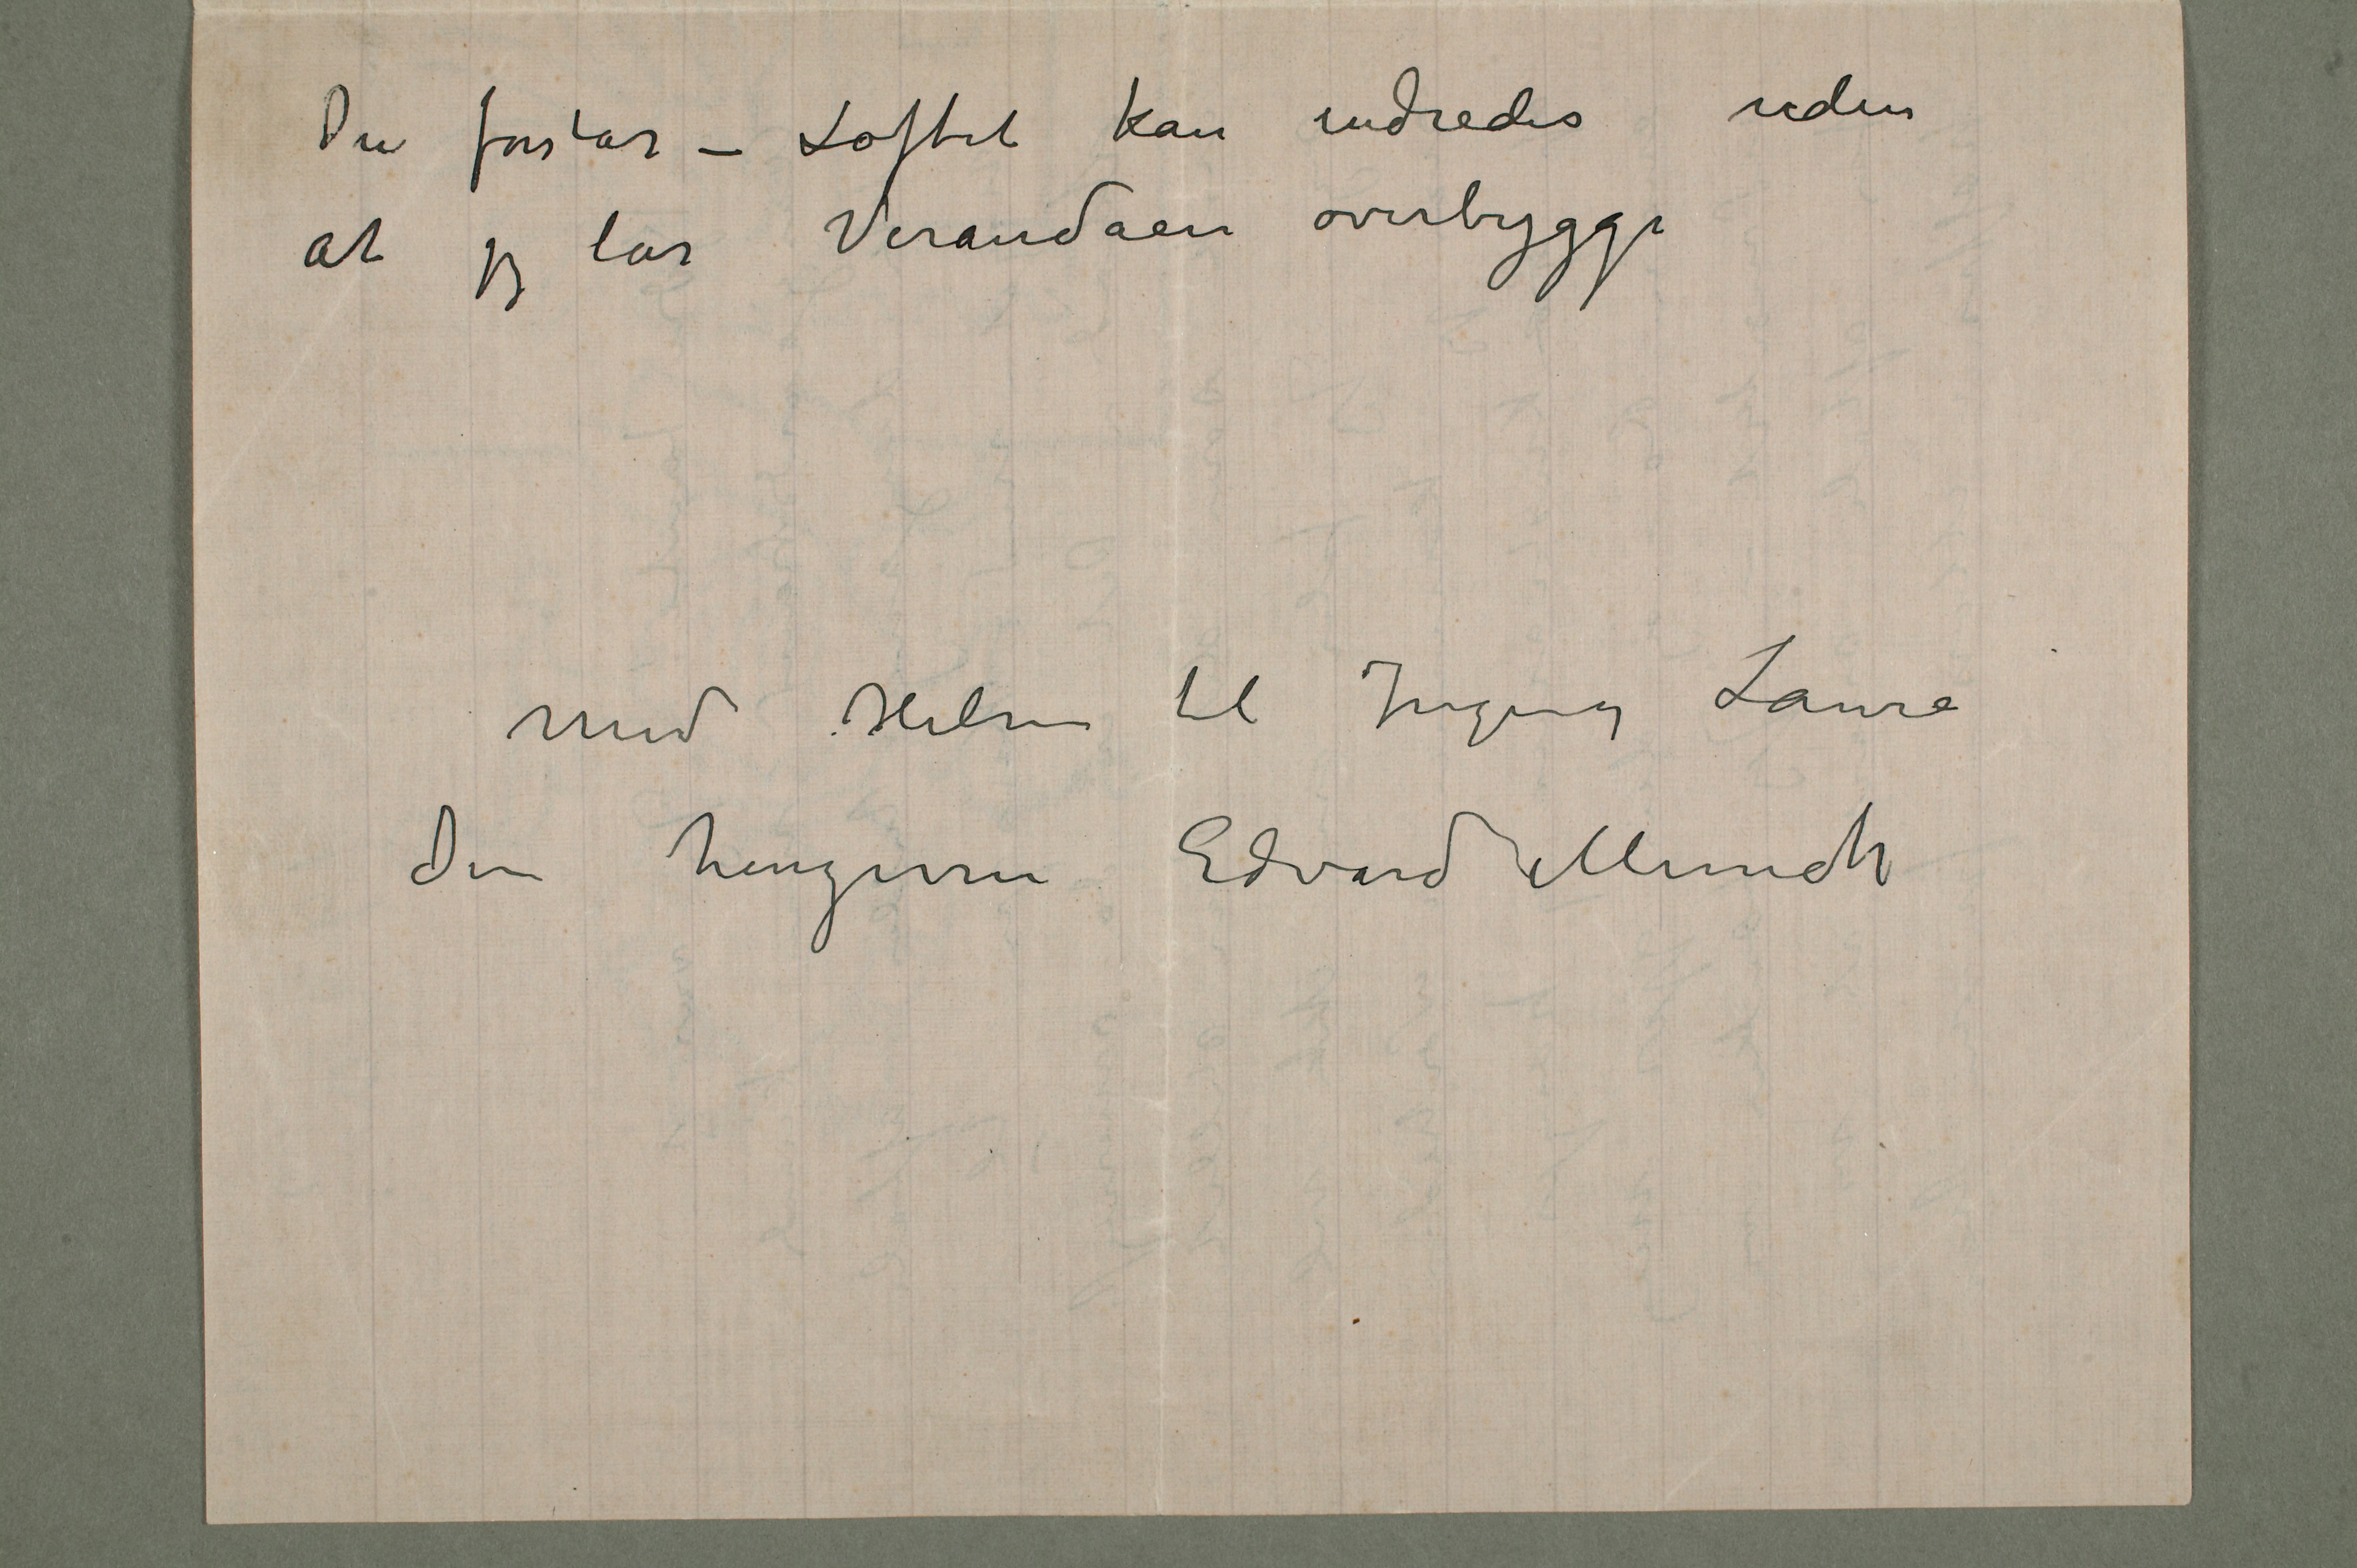 Du forstår – Loftet kan indredes uden
at jeg lar Verandaen overbygge
med Hilsen til Inger og Laura
Din hengivne Edvard Munch